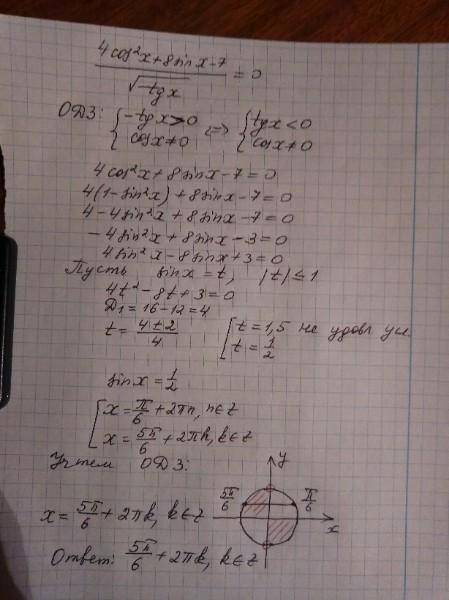 (4cos²x+8sinx-7)/√(-tgx) = 0
ОДЗ: { -tgx>0 <=> { tgx<0
{ cosx≠0 { cosx≠0
4cos²x+8sinx-7=0
4(1-sin²x)+8sinx-7=0
4-4sin²x+8sinx-7=0
-4sin²x+8sinx-3=0
4sin²x-8sinx+3=0
Пусть sinx=t, |t|≤1
4t²-8t+3=0
D₁=16-12=4
t=(4±2)/4 [ t=1,5 не удовл ум.
[ t=1/2
sinx=1/2
[ x=π/6+2πn, n∈Z
[ x=5π/6+2πk, k∈Z
Учтем ОДЗ:
y
5π/6 π/6
x=5π/6+2πk, k∈Z
x
Ответ: 5π/6+2πk, k∈Z